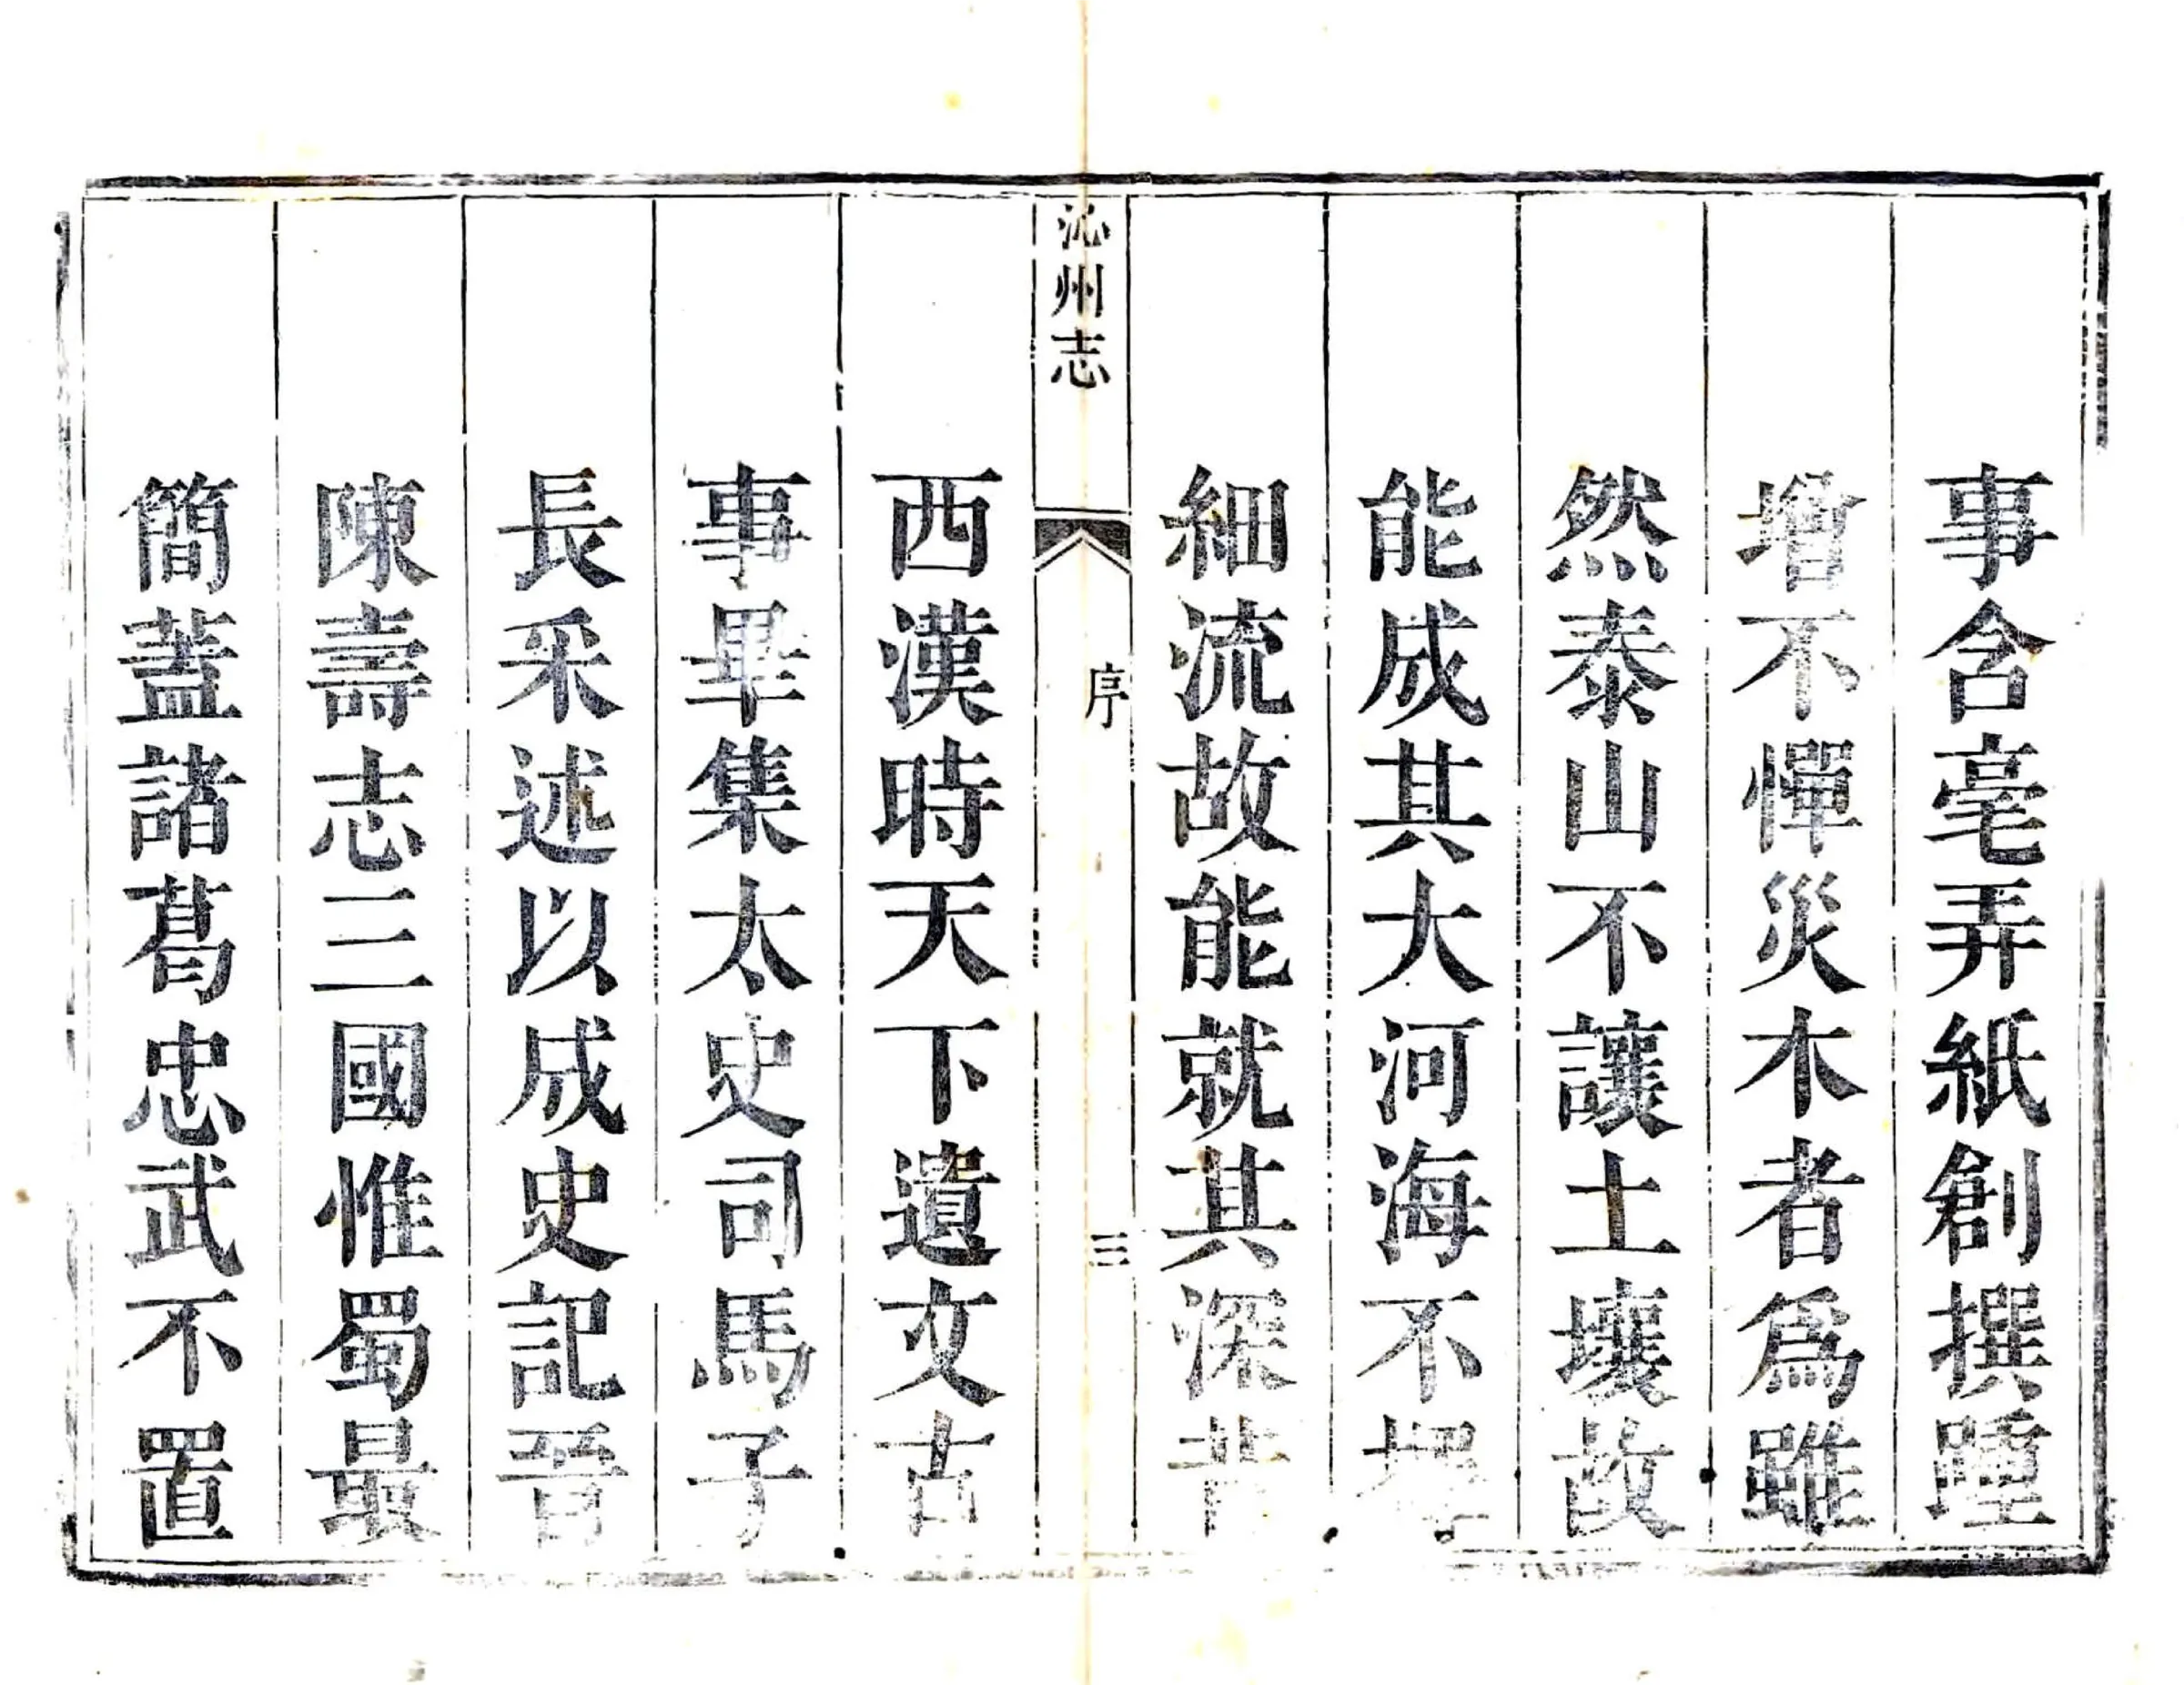 事含毫弄紙創撰踵
增不憚災木者爲雖
然泰山不讓土壤故
能成其大河海不擇
細流故能就其深昔
沁州志
序
三
西漢時天下遺文古
事畢集太史司馬子
長采述以成史記晉
陳壽志三國惟蜀最
簡蓋諸葛忠武不置